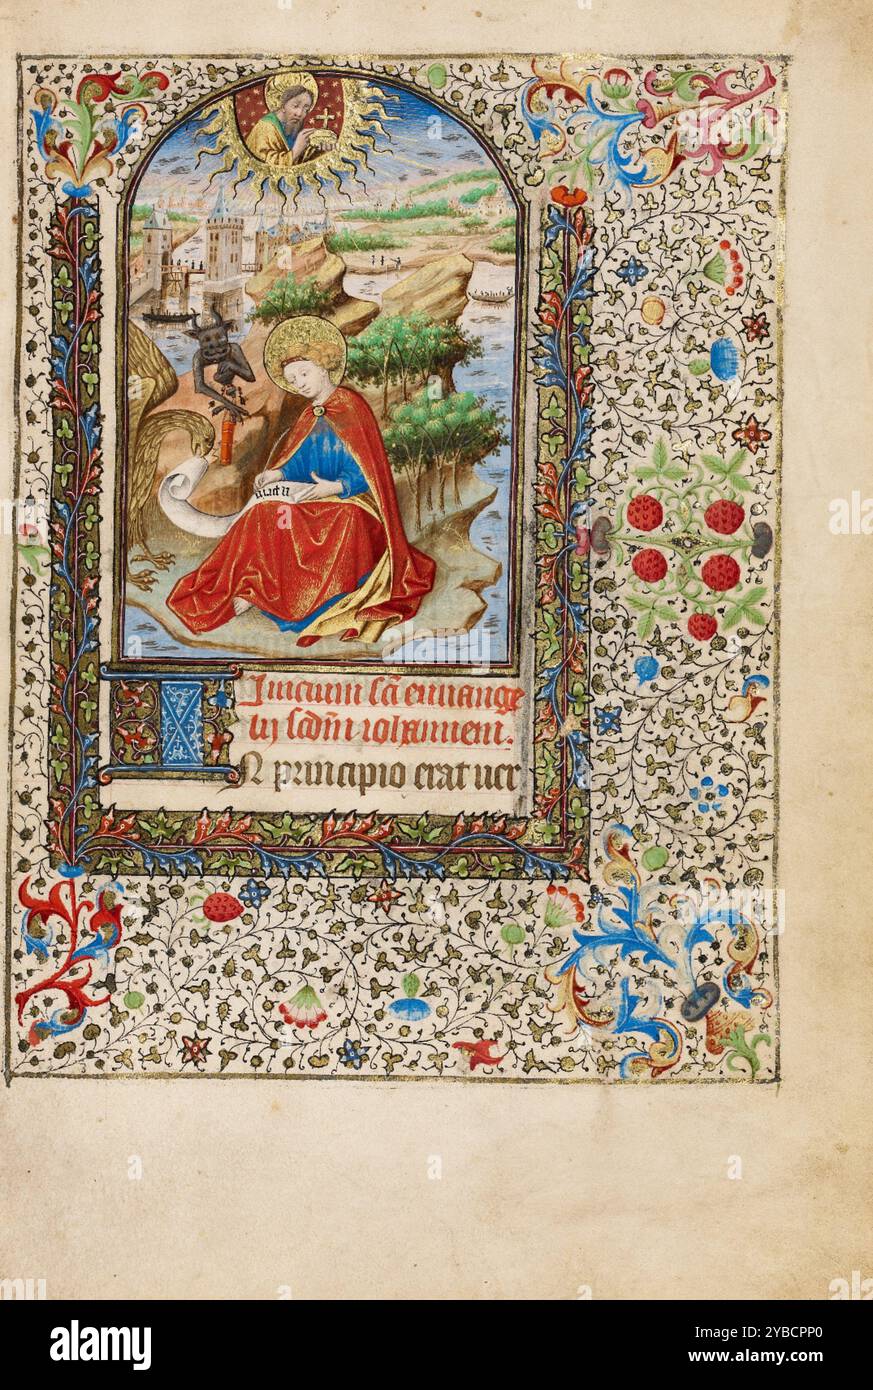 Inicium sc̄i euuange
lij scd̄m iohannem.
IN principio erat uer
alamy
Image ID: 2YBCPP0
www.alamy.com